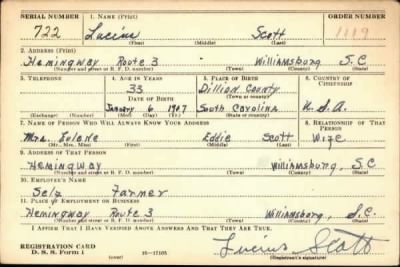 SERIAL NUMBER 1. NAME (Print) ORDER NUMBER
722 Lucius Scott 1119
(First) (Middle) (Last)
2. ADDRESS (Print)
Hemingway Route 3 Williamsburg S.C
(Number and street or R. F. D. number) (Town) (County) (State)
3. TELEPHONE 4. AGE IN YEARS 5. PLACE OF BIRTH 6. COUNTRY OF CITIZENSHIP
33 Dillion County
DATE OF BIRTH (Town or county)
January 6 1907 South Carolina U.S.A.
(Exchange) (No.) (Mo.) (Day) (Yr.) (State or country)
7. NAME OF PERSON WHO WILL ALWAYS KNOW YOUR ADDRESS 8. RELATIONSHIP OF THAT PERSON
Mrs. Eddie Scott Wife
(Mr., Mrs., Miss) (First) (Middle) (Last)
9. ADDRESS OF THAT PERSON
Hemingway Williamsburg, S.C
(Number and street or R. F. D. number) (Town) (County) (State)
10. EMPLOYER'S NAME
Self Farmer
11. PLACE OF EMPLOYMENT OR BUSINESS
Hemingway Route 3 Williamsburg, S.C.
(Number and street or R. F. D. number) (Town) (County) (State)
I AFFIRM THAT I HAVE VERIFIED ABOVE ANSWERS AND THAT THEY ARE TRUE.
REGISTRATION CARD
D. S. S. Form 1 16-17105 Lucius Scott
(Registrant's signature)